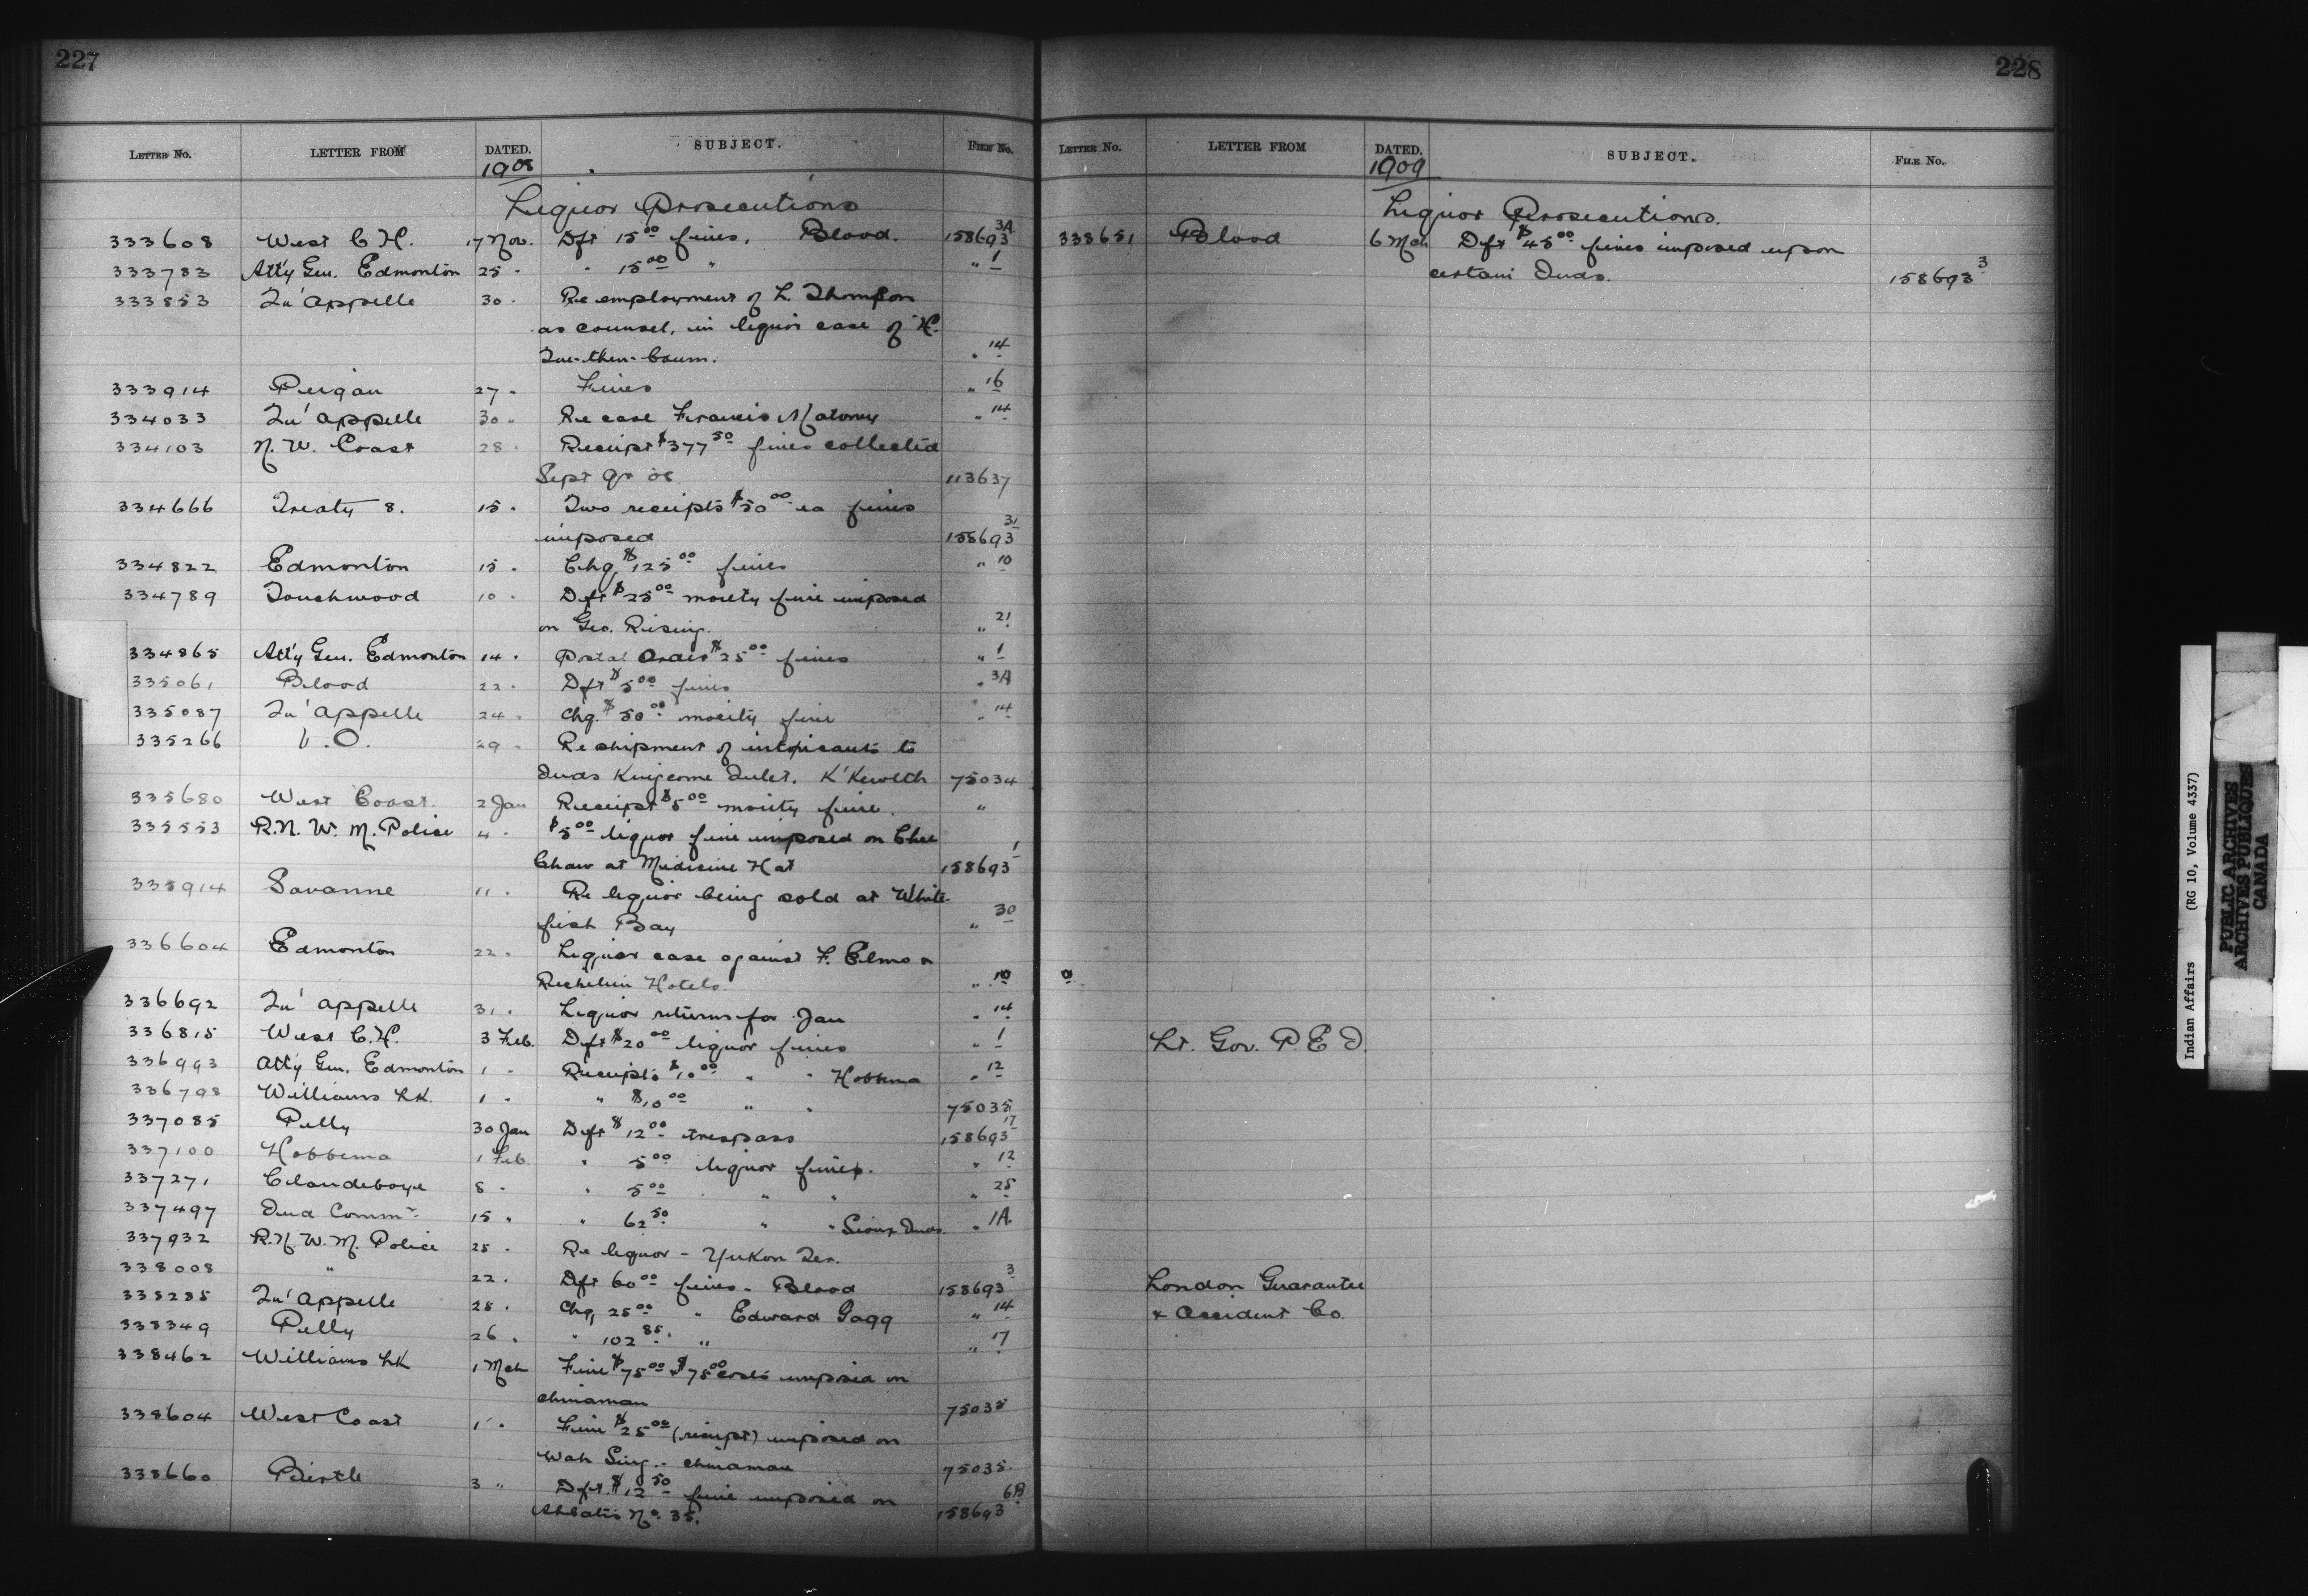 227
LETTER No. LETTER FROM DATED. SUBJECT. FILE No.
1908
Liquor Prosecutions
333608 West C H. 17 Nov. Dft 15.00 fines, Blood. 158693 3A
333783 Att'y Gen. Edmonton 25 " " 15.00 " " 1
333853 Qu'appelle 30 " Re employment of L. Thompson
as counsel, in liquor case of H.
" 14
333914 Peigan 27 " Fines " 16
334033 Qu'appelle 30 " Re case Francis " 14
334103 N. W. Coast 28 " Receipt $377.50 fines collected
Sept Qr 08. 113637
334666 Treaty 8. 15 " Two receipts $50.00 ea fines
imposed 158693 31
334822 Edmonton 15 " Chq. $125.00 fines " 10
334789 Touchwood 10 " Dft $25.00 moiety fine imposed
on Geo. Rising. " 21
334865 Att'y Gen. Edmonton 14 " Postal Order $25.00 fines " 1
335061 Blood 22 " Dft $5.00 fines " 3A
335087 Qu'appelle 24 " Chq. $50.00 moiety fine " 14
335266 V.O. 29 " Re shipment of intoxicants to
Inds Kingcome Inlet. 75034
335680 West Coast. 2 Jan Receipt $5.00 moiety fine. "
335553 R.N.W.M. Police 4 " $5.00 liquor fine imposed on Chee
Chaw at Medicine Hat 158693 1
335914 Savanne 11 " Re liquor being sold at White
fish Bay " 30
336604 Edmonton 22 " Liquor case against F. Elmo &
Richelieu Hotels. " 10
336692 Qu'appelle 31 " Liquor returns for Jan " 14
336815 West C.H. 3 Feb. Dft $20.00 liquor fines " 1
336993 Att'y Gen. Edmonton 1 " Receipts $10.00 " " Hobbema " 12
336798 Williams Lk. 1 " " $10.00 " " 75035
337085 Pelly 30 Jan Dft $12.00 trespass 158693 17
337100 Hobbema 1 Feb. " 5.00 liquor fines. " 12
337271 Clandeboye 8 " " 5.00 " " " 25
337497 Ind Commr 15 " " 62.50 " " Sioux Inds. " 1A.
337932 R.N.W.M. Police 25 " Re liquor - Yukon Ter.
338008 " 22 " Dft 60.00 fines - Blood 158693 3
338285 Qu'appelle 25 " Chq. 25.00 " Edward Gagg " 14
338349 Pelly 26 " " 102.85 " " 17
338462 Williams Lk 1 Mch Fine $75.00 & $75.00 costs imposed on
chinaman 75035
338604 West Coast 1 " Fine $25.00 (receipt) imposed on
Wah Sing - chinaman 75035
338660 Birtle 3 " Dft. $12.50 fine imposed on
No. 35. 158693
228
LETTER No. LETTER FROM DATED. SUBJECT. FILE No.
1909
Liquor Prosecutions.
338651 Blood 6 Mch Dft $45.00 fines imposed upon
certain Inds. 158693 3
Lt. Gov. P.E.I.
London Guarantee
& Accident Co.
Indian Affairs (RG 10, Volume 4337)
PUBLIC ARCHIVES
ARCHIVES PUBLIQUES
CANADA